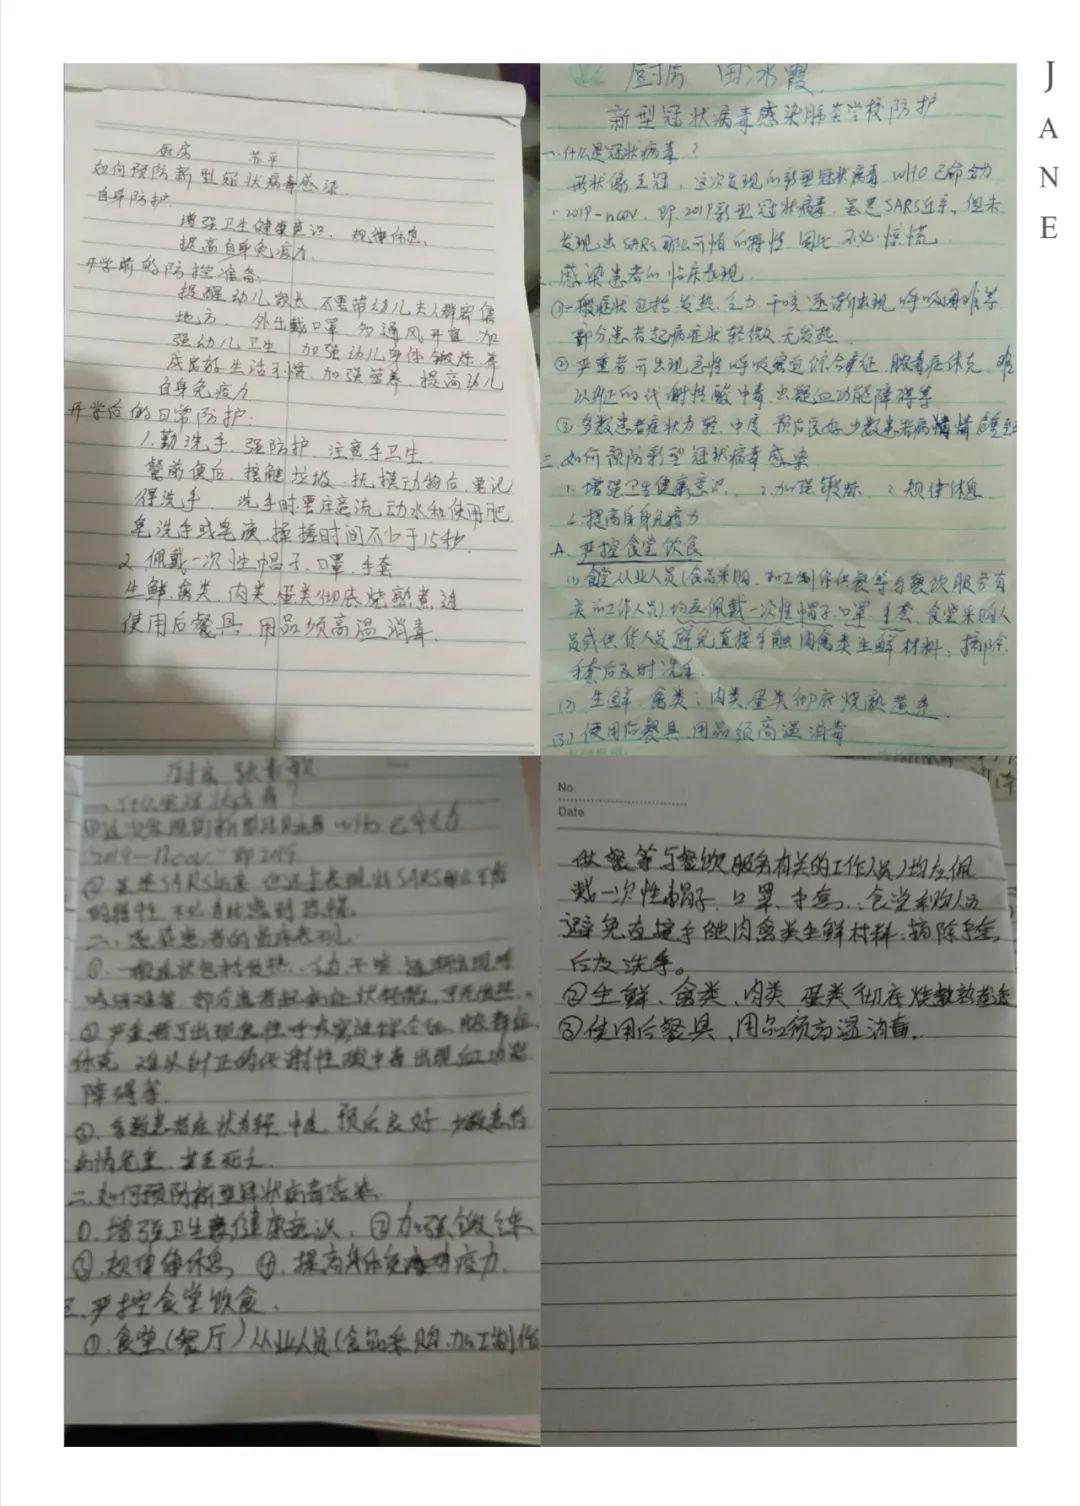 J
A
N
E
厨房 苏平
如何预防新型冠状病毒感染
自身防护
增强卫生健康意识、规律休息、
提高自身免疫力.
开学前的防控准备:
提醒幼儿家长 不要带幼儿去人群密集
地方. 外出戴口罩 多通风开窗 加
强幼儿卫生 加强幼儿身体锻炼 养
成良好生活习惯. 加强营养 提高幼儿
自身免疫力
开学后的日常防护:
1.勤洗手 强防护 注意手卫生
餐前便后、接触垃圾、抚摸动物后、要记
得洗手 洗手时要注意流动水和使用肥
皂洗手或皂液 揉搓时间不少于15秒.
2. 佩戴一次性帽子、口罩、手套
生鲜、禽类、肉类、蛋类彻底烧熟煮透
使用后餐具、用品须高温消毒.
厨房 田冰霞
新型冠状病毒感染肺炎学校防护
一.什么是冠状病毒?
形状像王冠，这次发现的新型冠状病毒 WHO已命名为
2019-ncov. 即2019新型冠状病毒，虽是SARS近亲，但未
发现出SARS那么可怕的特性 因此不必惊慌
感染患者的临床表现
①一般症状包括发热、乏力、干咳 逐渐出现呼吸困难等
部分患者起病症状轻微 无发热.
②严重者可出现急性呼吸窘迫综合症征 脓毒症休克 难
以纠正的代谢性酸中毒 出凝血功能障碍等
③多数患者症状为轻、中度 预后良好 少数患者病情
三.如何预防新型冠状病毒感染
1.增强卫生健康意识、 2.加强锻炼 3.规律休息
4.提高自身免疫力
A. 严控食堂饮食
(1)食堂从业人员(食品采购、加工制作供餐等与餐饮服务有
关的工作人员)均应佩戴一次性帽子、口罩、手套、食堂采购人
员或供货人员避免直接手触肉禽类生鲜材料; 摘除
手套后及时洗手.
(2) 生鲜、禽类、肉类、蛋类彻底烧熟煮透
(3) 使用后餐具、用品须高温消毒
厨房
一.什么是冠状病毒?
①这次发现的新型冠状病毒 WHO已命名为
2019-ncov. 即2019
②虽是SARS近亲 但还未发现出SARS那么可怕
的特性 不必有此感到恐慌.
二、感染患者的临床表现.
①. 一般症状包括发热、乏力、干咳、逐渐出现呼
吸困难等 部分患者起病症状轻微, 可无发热.
②严重者可出现急性呼吸窘迫综合征、脓毒症
休克 难以纠正的代谢性酸中毒 出现血功能
障碍等
③. 多数患者症状为轻 中度 预后良好 少数患者
病情危重、甚至死亡.
二.如何预防新型冠状病毒感染.
①.增强卫生健康意识、 ②加强锻练
③.规律休息, ④.提高身体免疫力.
三.严控食堂饮食.
①.食堂(餐厅)从业人员(食品采购、加工制作
No.
Date
供餐等与餐饮服务有关的工作人员)均应佩
戴一次性帽子、口罩、手套、食堂采购人员
避免直接手触肉禽类生鲜材料; 摘除手套
后及洗手。
②生鲜、禽类、肉类 蛋类彻底烧熟煮透
③使用后餐具、用品须高温消毒.